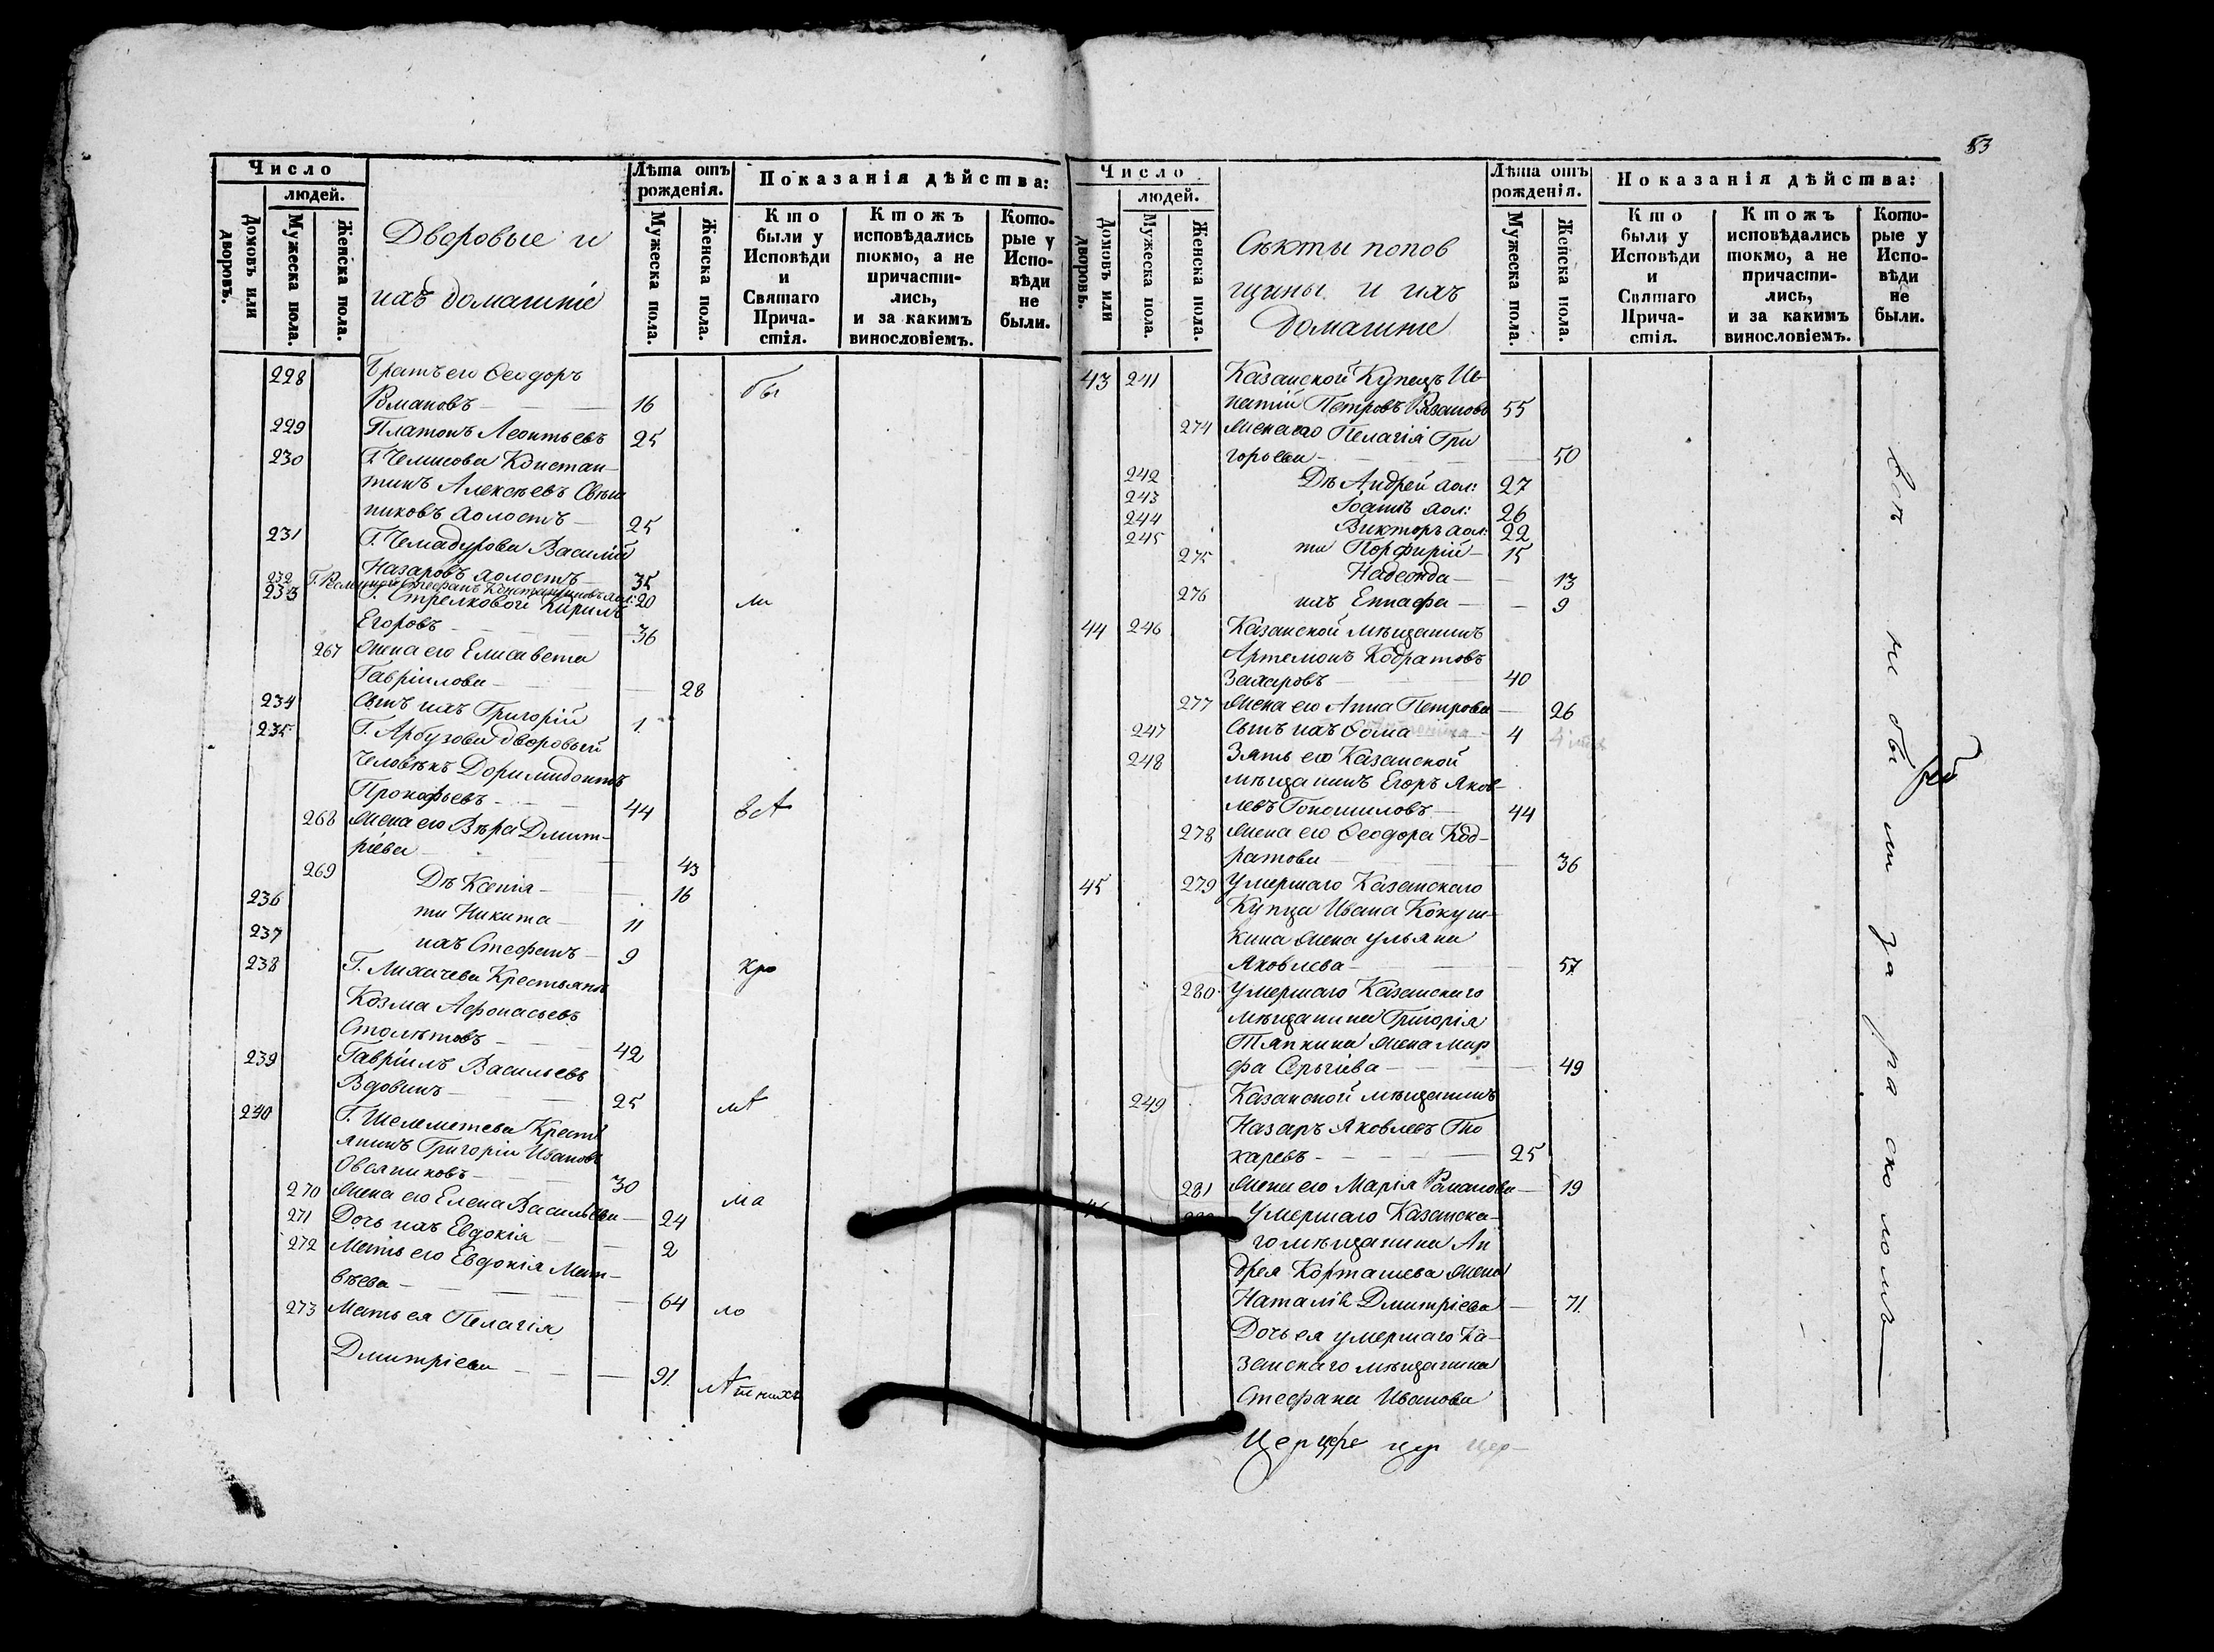 Число
людей.
Домовъ или дворовъ.
Мужеска пола.
Женска пола.
Дворовые и
ихъ домашніе
Лѣта отъ
рожденія.
Мужеска пола.
Женска пола.
Показанія дѣйства:
Кто
были у
Исповѣди
и
Святаго
Прича-
стія.
Ктожъ
исповѣдались
токмо, а не
причасти-
лись,
и за какимъ
винословіемъ.
Кото-
рые у
Испо-
вѣди
не
были.
228 Братъ его Ѳеодоръ
Романовъ — 16 бы
229 Платонъ Леонтьевъ 25
230 Г. Чемисова Констан-
тинъ Алексѣевъ
никовъ холостъ — 25
231 Г. Чемадурова Василій
Назаровъ холостъ — 35
232 Стефанъ Константиновъ хол: 20
233 Г. Стрелковой Кирилъ ли
Егоровъ — 36
267 Жена его Елисавета
Гавріилова — 28
234 Сынъ ихъ Григорій 1
235 Г. Арбузова дворовый
Человѣкъ Доримидонтъ
Прокофьевъ — 44 всѣ
268 Жена его Вѣра Дмит-
ріева — 43
269 Дѣ Ксенія — 16
236 ти Никита — 11
237 ихъ Стефанъ — 9
238 Г. Лихачева Крестьянъ кро
Козма Афонасьевъ
Столѣтовъ — 42
239 Гавріилъ Васильевъ
Вдовинъ — 25 мѣ
240 Г. Шелеметева Крестья
янинъ Григорій Ивановъ
Овсяниковъ — 30
270 Жена его Елена Васильева — 24 ма
271 Дочь ихъ Евдокія — 2
272 Мать его Евдокія Мат-
вѣева — 64 ло
273 Мать ея Пелагія
Дмитріева — 91. лѣтнихъ
53
Число
людей.
Домовъ или дворовъ.
Мужеска пола.
Женска пола.
Сѣкты попов
щины и ихъ
домашніе
Лѣта отъ
рожденія.
Мужеска пола.
Женска пола.
Показанія дѣйства:
Кто
были у
Исповѣди
и
Святаго
Прича-
стія.
Ктожъ
исповѣдались
токмо, а не
причасти-
лись,
и за какимъ
винословіемъ.
Кото-
рые у
Испо-
вѣди
не
были.
43 241 Казанской Купецъ Иг-
натій Петровъ Рязановъ 55
274 Жена его Пелагія Гри
горьева — 50
242 Дѣ Андрей хол: 27
243 Іоаннъ хол: 26
244 Викторъ хол: 22
245 ти Порфирій — 15
275 Надежда — 13
276 ихъ — 9
44 246 Казанской мѣщанинъ
Артемонъ Кодратовъ
Захаровъ — 40
277 Жена его Анна Петрова — 26
247 Сынъ ихъ Ѳома 4
248 Зять его Казанской
мѣщанинъ Егоръ Яков-
левъ — 44
278 Жена его Ѳеодора Код-
ратова — 36
45 279 Умершаго Казанскаго
Купца Ивана Кокуш-
кина жена Ульяна
Яковлева — 57
280 Умершаго Казанскаго
мѣщанина Григорія
Тяпкина жена Мар
фа Сергіева — 49
249 Казанской мѣщанинъ
Назаръ Яковлевъ То
каревъ — 25
281 Жена его Марія Романова — 19
46 Умершаго Казанска-
го мѣщанина Ан
дрея Корташева жена
Наталія Дмитріева — 71.
Дочь ея умершаго Ка-
занскаго мѣщанина
Стефана Иванова
всѣ не были за расколомъ